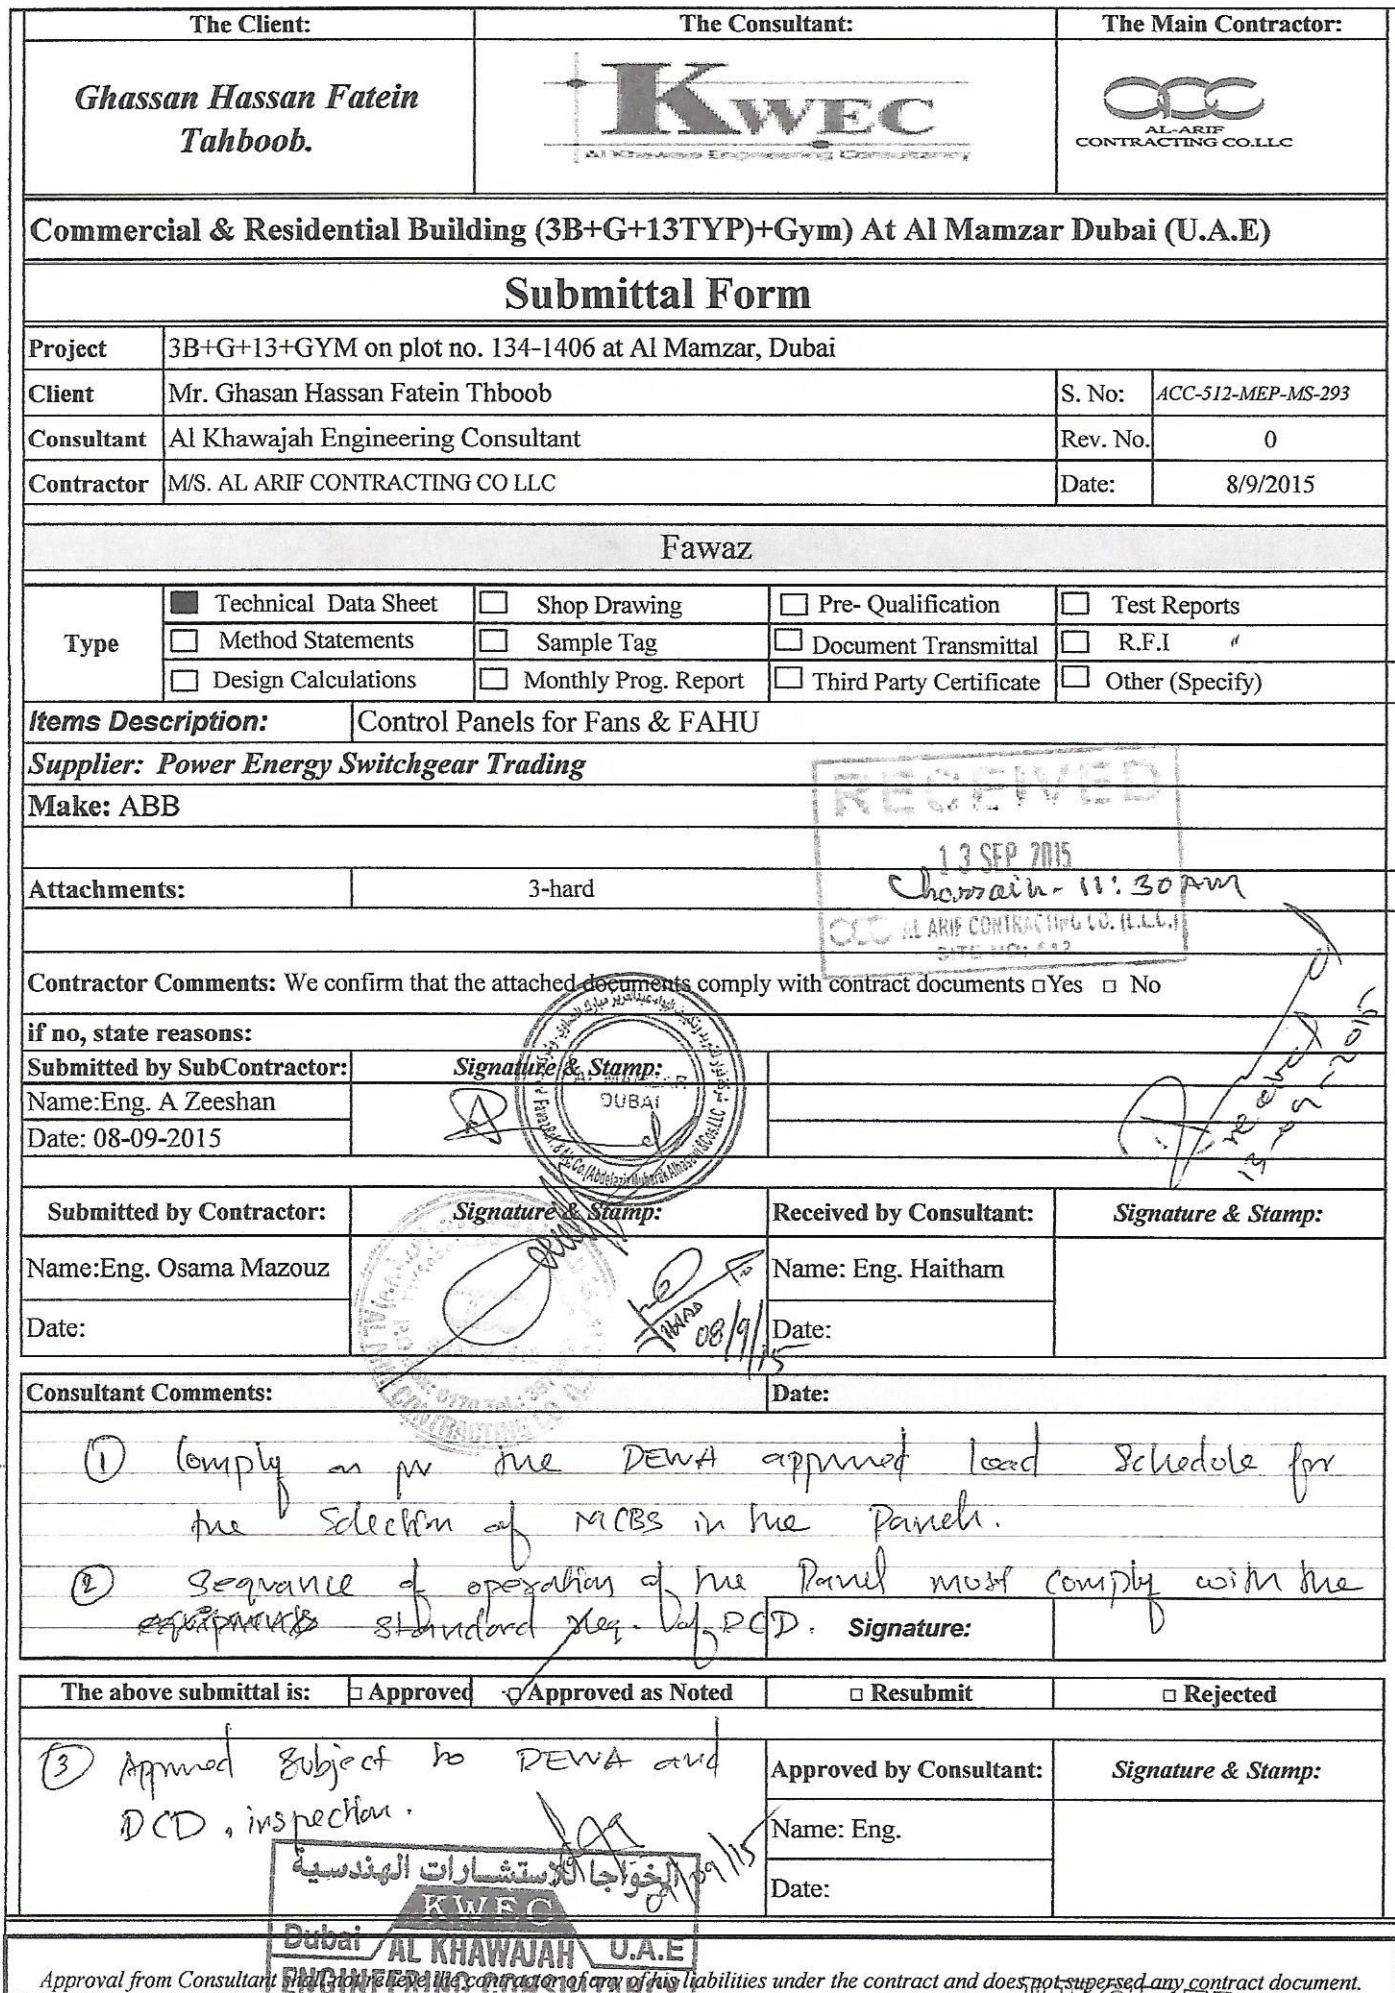 The Client: The Consultant: The Main Contractor:
Ghassan Hassan Fatein
Tahboob.
KWEC
Al Khawaja Engineering Consultancy
ACC
AL-ARIF
CONTRACTING CO.LLC
Commercial & Residential Building (3B+G+13TYP)+Gym) At Al Mamzar Dubai (U.A.E)
Submittal Form
Project 3B+G+13+GYM on plot no. 134-1406 at Al Mamzar, Dubai
Client Mr. Ghasan Hassan Fatein Thboob S. No: ACC-512-MEP-MS-293
Consultant Al Khawajah Engineering Consultant Rev. No. 0
Contractor M/S. AL ARIF CONTRACTING CO LLC Date: 8/9/2015
Fawaz
Type
Technical Data Sheet Shop Drawing Pre- Qualification Test Reports
Method Statements Sample Tag Document Transmittal R.F.I
Design Calculations Monthly Prog. Report Third Party Certificate Other (Specify)
Items Description: Control Panels for Fans & FAHU
Supplier: Power Energy Switchgear Trading
RECEIVED
Make: ABB
13 SEP 2015
Attachments: 3-hard
11:30 AM
ACC AL ARIF CONTRACTING CO. (L.L.C.)
SITE NO: 512
Contractor Comments: We confirm that the attached documents comply with contract documents □Yes □ No
if no, state reasons:
Submitted by SubContractor: Signature & Stamp:
AL MAMZAR
DUBAI
Name:Eng. A Zeeshan
Date: 08-09-2015
received
13-09-2015
Submitted by Contractor: Signature & Stamp: Received by Consultant: Signature & Stamp:
Name:Eng. Osama Mazouz Name: Eng. Haitham
Date: 08/9/15 Date:
AL ARIF CONTRACTING CO.
Consultant Comments: Date:
① Comply as per the DEWA approved load Schedule for
the Selection of MCBS in the Panels.
② Sequance of operation of the Panel must comply with the
standard req. of DCD. Signature:
The above submittal is: □ Approved □ Approved as Noted □ Resubmit □ Rejected
③ Approved Subject to DEWA and
DCD, inspection.
Approved by Consultant: Signature & Stamp:
Name: Eng.
Date:
09/15
الخواجا للاستشارات الهندسية
KWEC
Dubai AL KHAWAJAH U.A.E
ENGINEERING CONSULTANCY
Approval from Consultant shall not relieve the contractor of any of his liabilities under the contract and does not supersed any contract document.